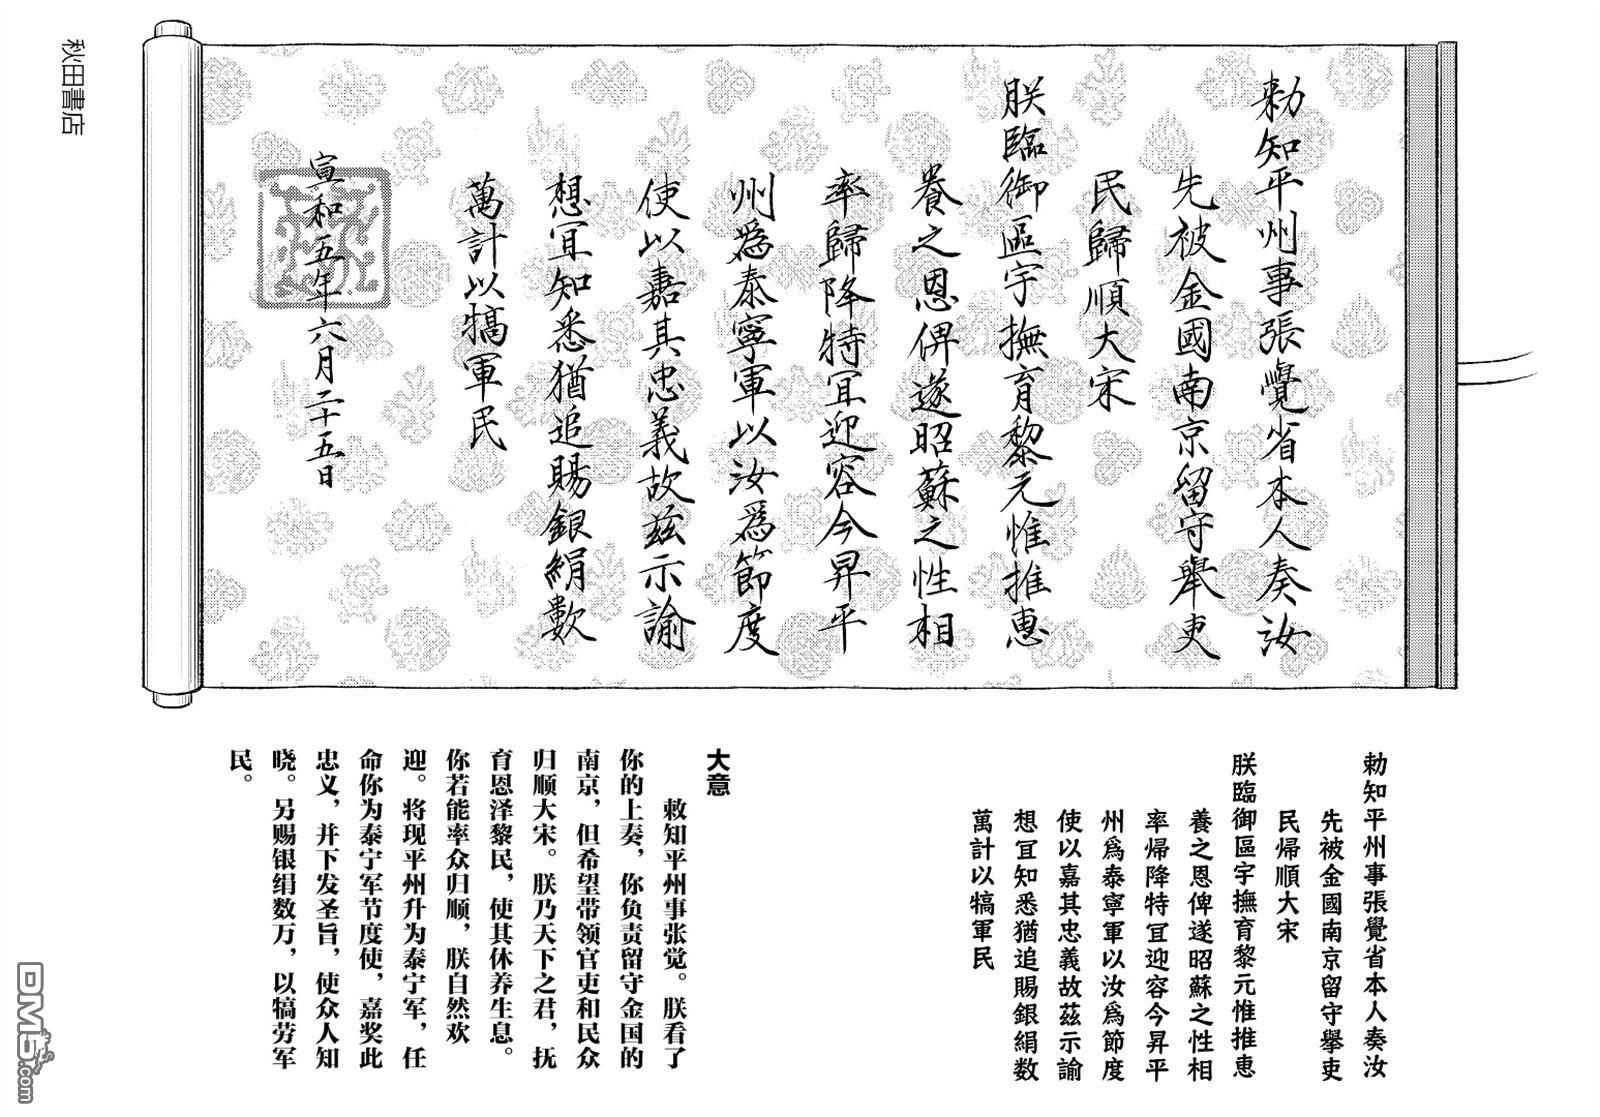 秋田書店
勅知平州事張覺省本人奏汝
先被金國南京留守擧吏
民歸順大宋
朕臨御區宇撫育黎元惟推惠
養之恩俾遂昭蘇之性相
率歸降特冝迎容今昇平
州爲泰寧軍以汝爲節度
使以嘉其忠義故茲示諭
想冝知悉猶追賜銀絹數
萬計以犒軍民
宣和五年六月二十五日
勅知平州事張覺省本人奏汝
先被金國南京留守擧吏
民帰順大宋
朕臨御區宇撫育黎元惟推恵
養之恩俾遂昭蘇之性相
率帰降特冝迎容今昇平
州爲泰寧軍以汝爲節度
使以嘉其忠義故茲示諭
想冝知悉猶追賜銀絹数
萬計以犒軍民
大意
敕知平州事张觉。朕看了
你的上奏，你负责留守金国的
南京，但希望带领官吏和民众
归顺大宋。朕乃天下之君，抚
育恩泽黎民，使其休养生息。
你若能率众归顺，朕自然欢
迎。将现平州升为泰宁军，任
命你为泰宁军节度使，嘉奖此
忠义，并下发圣旨，使众人知
晓。另赐银绢数万，以犒劳军
民。
DM5.com